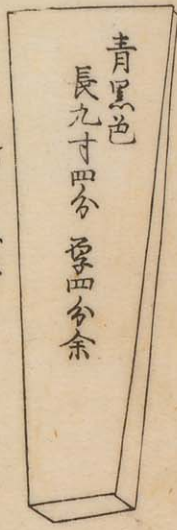 青黒色
長九寸四分 厚四分余